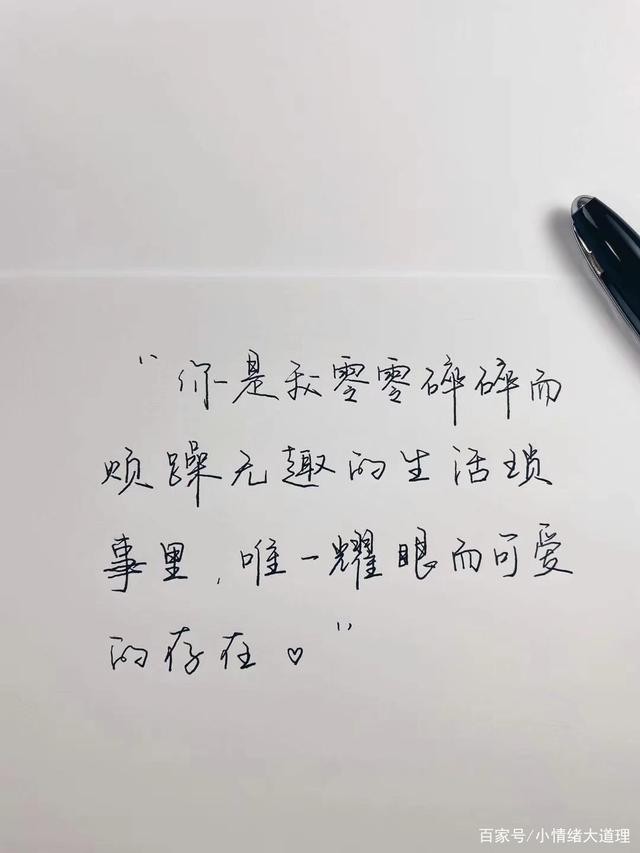 “你是我零零碎碎而
烦躁无趣的生活琐
事里，唯一耀眼而可爱
的存在♡”
百家号/小情绪大道理